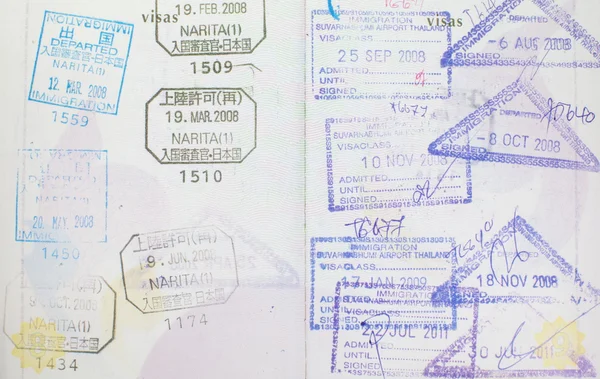 visas
19. FEB. 2008
NARITA(1)
入国審査官・日本国
1509
IMMIGRATION
出国
DEPARTED
入国審査官・日本国
NARITA(1)
12 MAR 2008
IMMIGRATION
1559
上陸許可(再)
19. MAR. 2008
NARITA(1)
入国審査官・日本国
1510
NARITA
20. MAY. 2008
1450
上陸許可(再)
9. JUN. 2008
NARITA(1)
入国審査官・日本国
1174
上陸許可(再)
9. OCT. 2008
NARITA(1)
入国審査官・日本国
1434
visas
IMMIGRATION
SUVARNABHUMI AIRPORT THAILAND
VISACLASS
25 SEP 2008
ADMITTED
UNTIL
SIGNED
-6 AUG 2008
SIGNED
T6677
IMMIGRATION
SUVARNABHUMI AIRPORT THAILAND
VISACLASS
10 NOV 2008
ADMITTED
UNTIL
SIGNED
IMMIGRATION
DEPARTED
-8 OCT 2008
T6677
IMMIGRATION
SUVARNABHUMI AIRPORT THAILAND
VISACLASS
JAN 2009
18 NOV 2008
SIGNED
IMMIGRATION
VISACLASS
22 JUL 2011
ADMITTED
UNTIL
SIGNED
JUL 2011